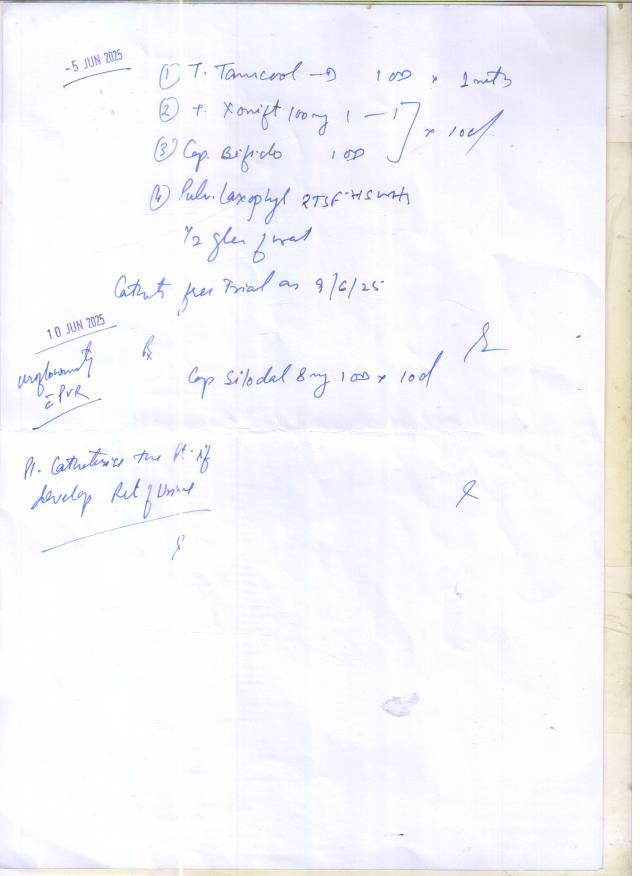 -5 JUN 2025
① T. Tamcool - D 1 OD × 1 mth
② T. Xonift 100mg 1 - 1
③ Cap. Bifido 1 OD ] × 10d
④ Pulv. Laxophyl 2TSF HS with
1/2 glass of wat
Cathet free Trial on 9/6/25
10 JUN 2025
Rx
uroflowmetry
c̄ PVR
Cap Silodal 8mg 1 OD × 10d
Pl. Catheterise the Pt. if
develop Ret of Urine